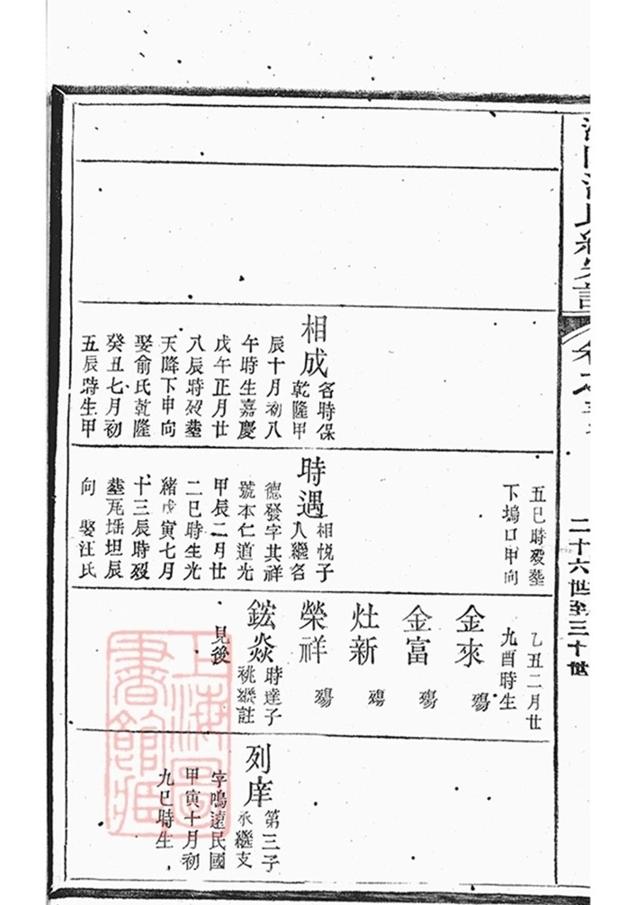 二十六世至三十世
相成
名時保
乾隆甲
辰十月初八
午時生嘉慶
戊午正月廿
八辰時歿塟
天降下申向
娶俞氏乾隆
癸丑七月初
五辰時生甲
五巳時歿塟
下塢口甲向
時遇
相悦子
入繼名
德發字其祥
號本仁道光
甲辰二月廿
二巳時生光
緒戊寅七月
十三辰時歿
塟瓦垯坦辰
向 娶汪氏
乙丑二月廿
九酉時生
金來 殤
金富 殤
灶新 殤
榮祥 殤
鋐焱
時達子
祧繼註
見後
列庠
第三子
承繼支
字鳴遠民國
甲寅十月初
九巳時生
上海圖
書館藏